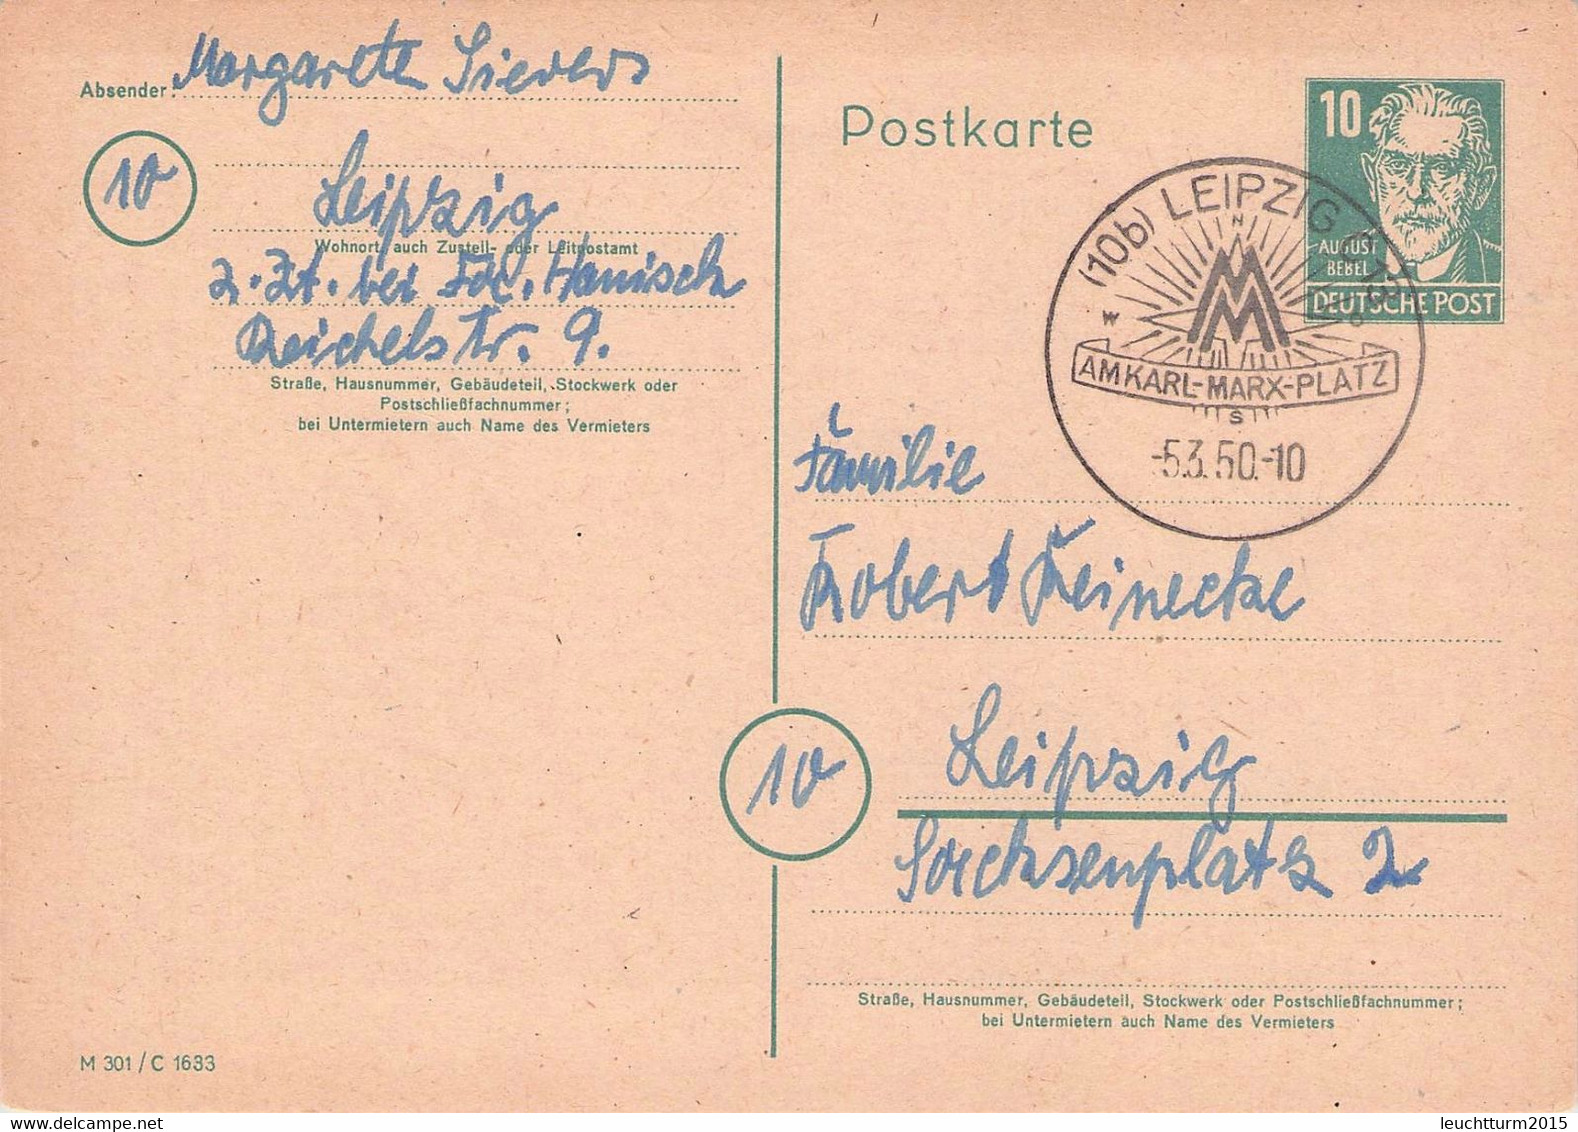 Absender: Margarete Sievers
10
Leipzig
Wohnort, auch Zustell- oder Leitpostamt
z. Zt. bei Fa. Hanisch
Reichelstr. 9.
Straße, Hausnummer, Gebäudeteil, Stockwerk oder
Postschließfachnummer;
bei Untermietern auch Name des Vermieters
M 301 / C 1633
Postkarte
10
AUGUST
BEBEL
DEUTSCHE POST
(10b) LEIPZIG C 13
N
W O
MM
AM KARL-MARX-PLATZ
S
-5.3.50.-10
Familie
Robert Reinecke
10
Leipzig
Sachsenplatz 2
Straße, Hausnummer, Gebäudeteil, Stockwerk oder Postschließfachnummer;
bei Untermietern auch Name des Vermieters
leuchtturm2015